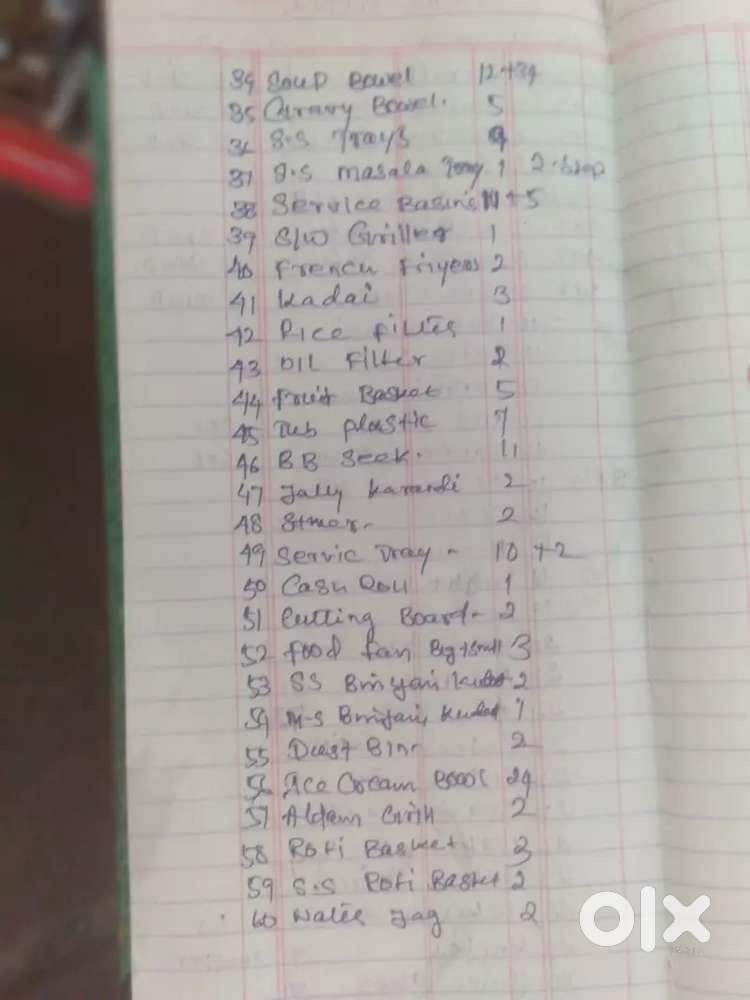 34 Soup Bowel 12 + 34
35 Gravy Bowel. 5
36 S.S Trays 9
37 S.S masala 1 2. Step
38 Service Basins + 5
39 S/W Griller 1
40 French Friyers 2
41 Kadai 3
42 Rice Filter 1
43 OIL Filter 2
44 Fruit Basket. 5
45 Tub plastic 7
46 BB Seek. 11
47 Jally Karandi 2
48 2
49 Servic Tray - 10 + 2
50 Cash Roll 1
51 Cutting Board - 2
52 food fan Big + Small 3
53 SS Briyani 2
54 M-S Briyani 1
55 Dust Bin - 2
56 Ice Cream Bowl 24
57 Grill 2
58 Roti Basket
59 S.S Roti Basket 2
60 Water Jag 2
olx